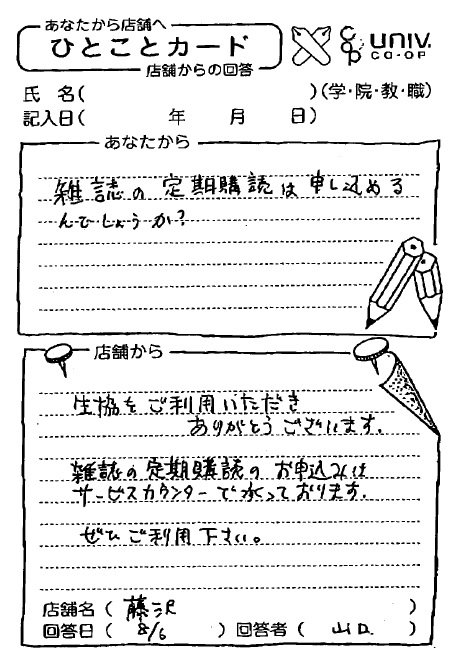 あなたから店舗へ
ひとことカード
店舗からの回答
CO-OP UNIV.
CO-OP
氏 名( )(学・院・教・職)
記入日( 年 月 日)
あなたから
雑誌の定期購読は申し込める
んでしょうか?
店舗から
生協をご利用いただき
ありがとうございます。
雑誌の定期購読のお申込みは
サービスカウンターで承っております。
ぜひご利用下さい。
店舗名( 藤沢 )
回答日( 8/6 ) 回答者( 山口 )